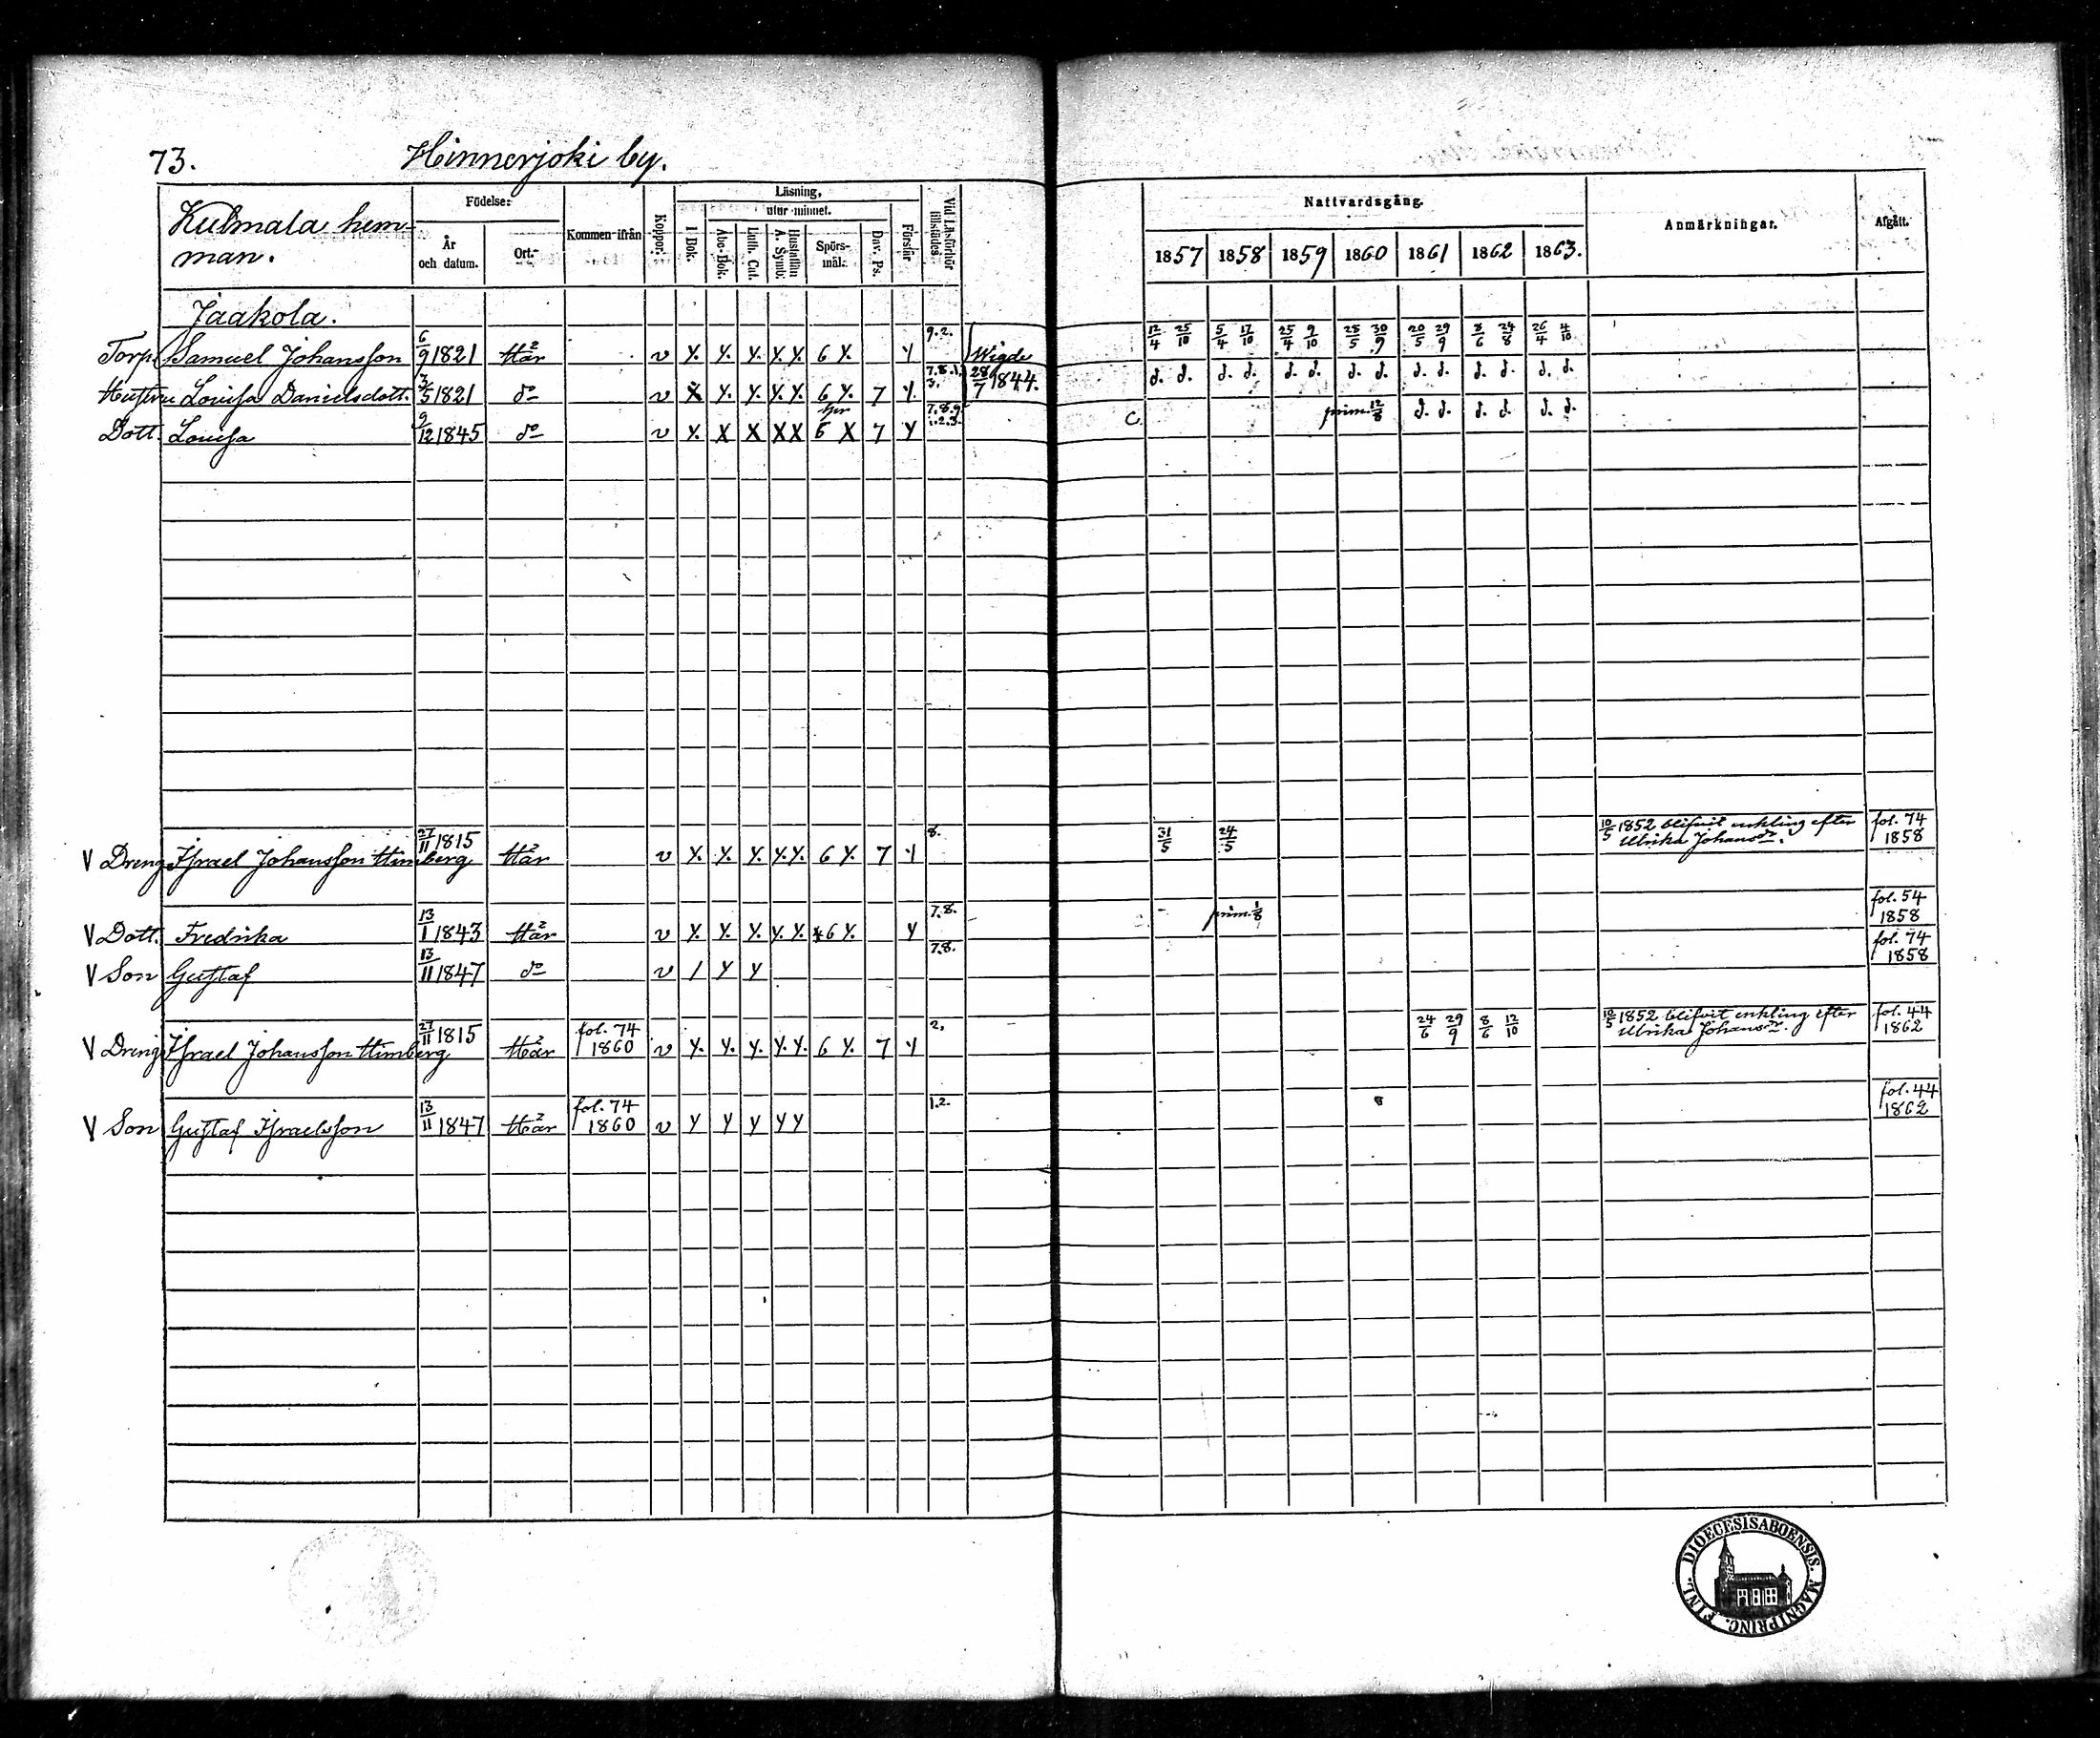 73. Hinnerjoki by.
Kulmala hem-
man.
Födelse:
År
och datum.
Ort.
Kommen ifrån
Koppor.
Läsning,
utur minnet.
I Bok.
Abc-Bok.
Luth. Cat.
Hustaflan
A. Symb.
Spörs-
mål.
Dav. Ps.
Förstår
Vid Läsförhör
tillstädes.
Nattvardsgång.
1857 1858 1859 1860 1861 1862 1863.
Anmärkningar.
Afgått.
Jaakola.
Torp. Samuel Johansson 6/9 1821 Här v Y. Y. Y. Y. Y. 6 Y. Y 9.2. Wigde 12/4 25/10 5/4 17/10 25/4 9/10 28/5 30/9 20/5 29/9 8/6 24/8 26/4 4/10
Hustru Lovisa Danielsdott. 3/5 1821 do v X Y. Y. Y. Y. 6 Y. 7 Y. 7.8.1. 3. 28/7 1844. d. d. d. d. d. d. d. d. d. d. d. d. d. d.
Dott. Lovisa 9/12 1845 do v Y. X X X X 6 X 7 Y 7.8.9. 1.2.3. C. prim. 12/8 d. d. d. d. d. d.
V Dreng Israel Johansson Himberg 27/11 1815 Här v Y. Y. Y. Y. Y. 6 Y. 7 Y 8. 31/5 24/5 10/5 1852 blifvit enkling efter
Ulrika Johansdr. fol. 74
1858
V Dott. Fredrika 13/1 1843 Här v Y. Y. Y. Y. Y. 6 Y. Y 7.8. prim. 1/8 fol. 54
1858
V Son Gustaf 13/11 1847 do v / Y Y 7.8. fol. 74
1858
V Dreng Israel Johansson Himberg 27/11 1815 Här fol. 74
1860 v Y. Y. Y. Y. Y. 6 Y. 7 Y 2. 24/6 29/9 8/6 12/10 10/5 1852 blifvit enkling efter
Ulrika Johansdr. fol. 44
1862
V Son Gustaf Israelsson 13/11 1847 Här fol. 74
1860 v Y Y Y Y Y 1.2. 8 fol. 44
1862
DIOECESISABOENSIS. MAGNI PRINC. FINL.